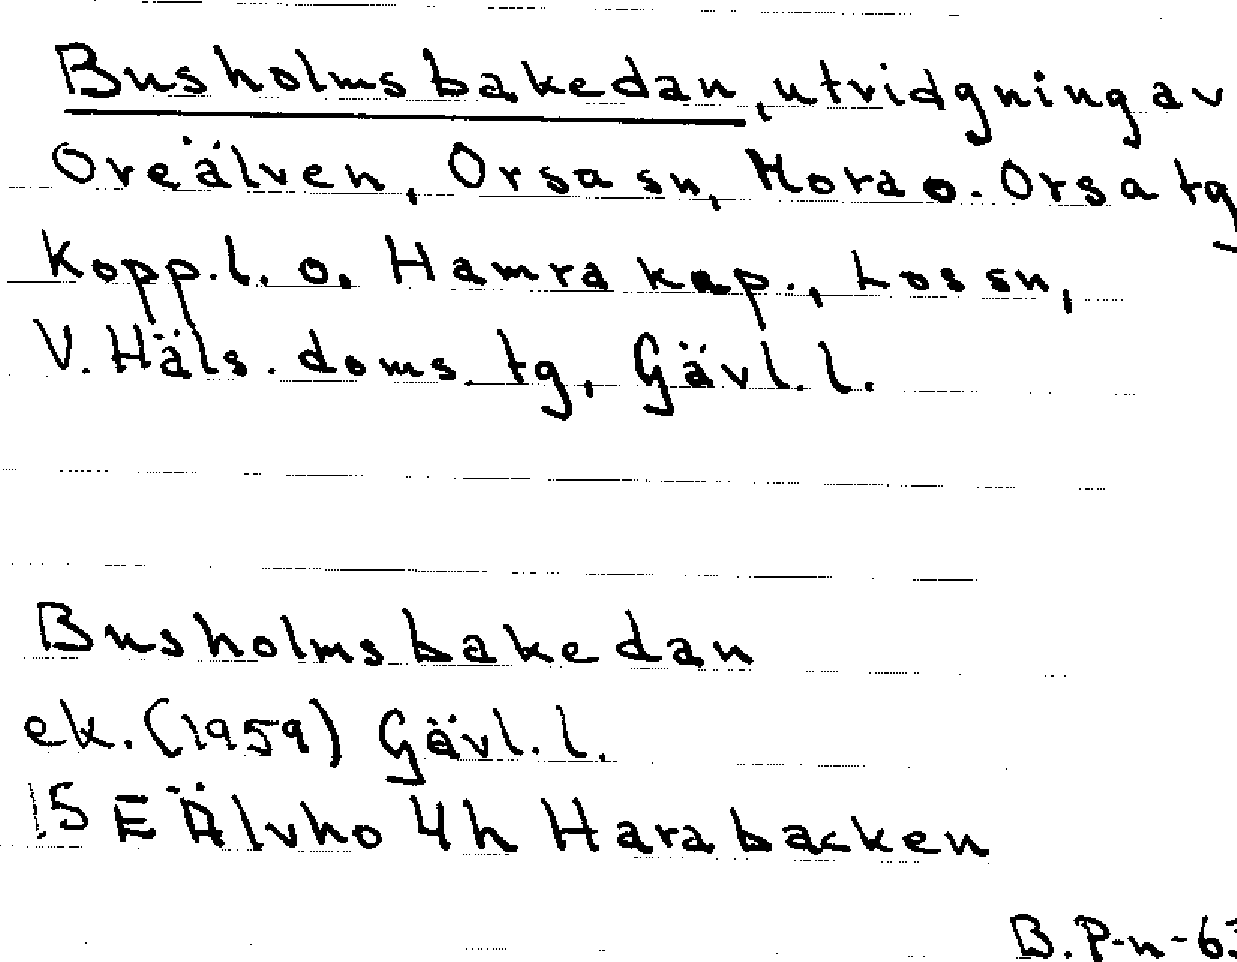 Busholmsbakedan, utvidgning av
Oreälven, Orsa sn, Mora o. Orsa tg
Kopp. l. o. Hamra kap., Los sn,
V. Häls. doms. tg, Gävl. l.
Busholmsbakedan
ek. (1959) Gävl. l.
15 E Älvho 4h Harabacken
B. P-n-63